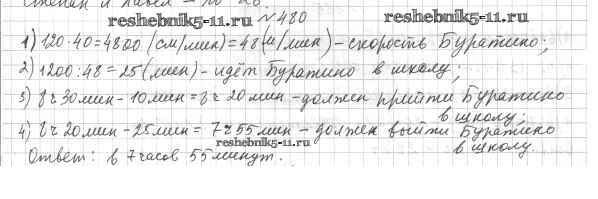 Степан и Павел - по 20.
reshebnik5-11.ru №480 reshebnik5-11.ru
1) 120·40=4800 (см/мин)=48(м/мин)-скорость Буратино;
2) 1200:48=25(мин)-идёт Буратино в школу;
3) 8ч30мин-10мин=8ч20мин-должен прийти Буратино
в школу;
4) 8ч20мин-25мин=7ч55мин-должен выйти Буратино
в школу.
reshebnik5-11.ru
Ответ: в 7часов 55минут.